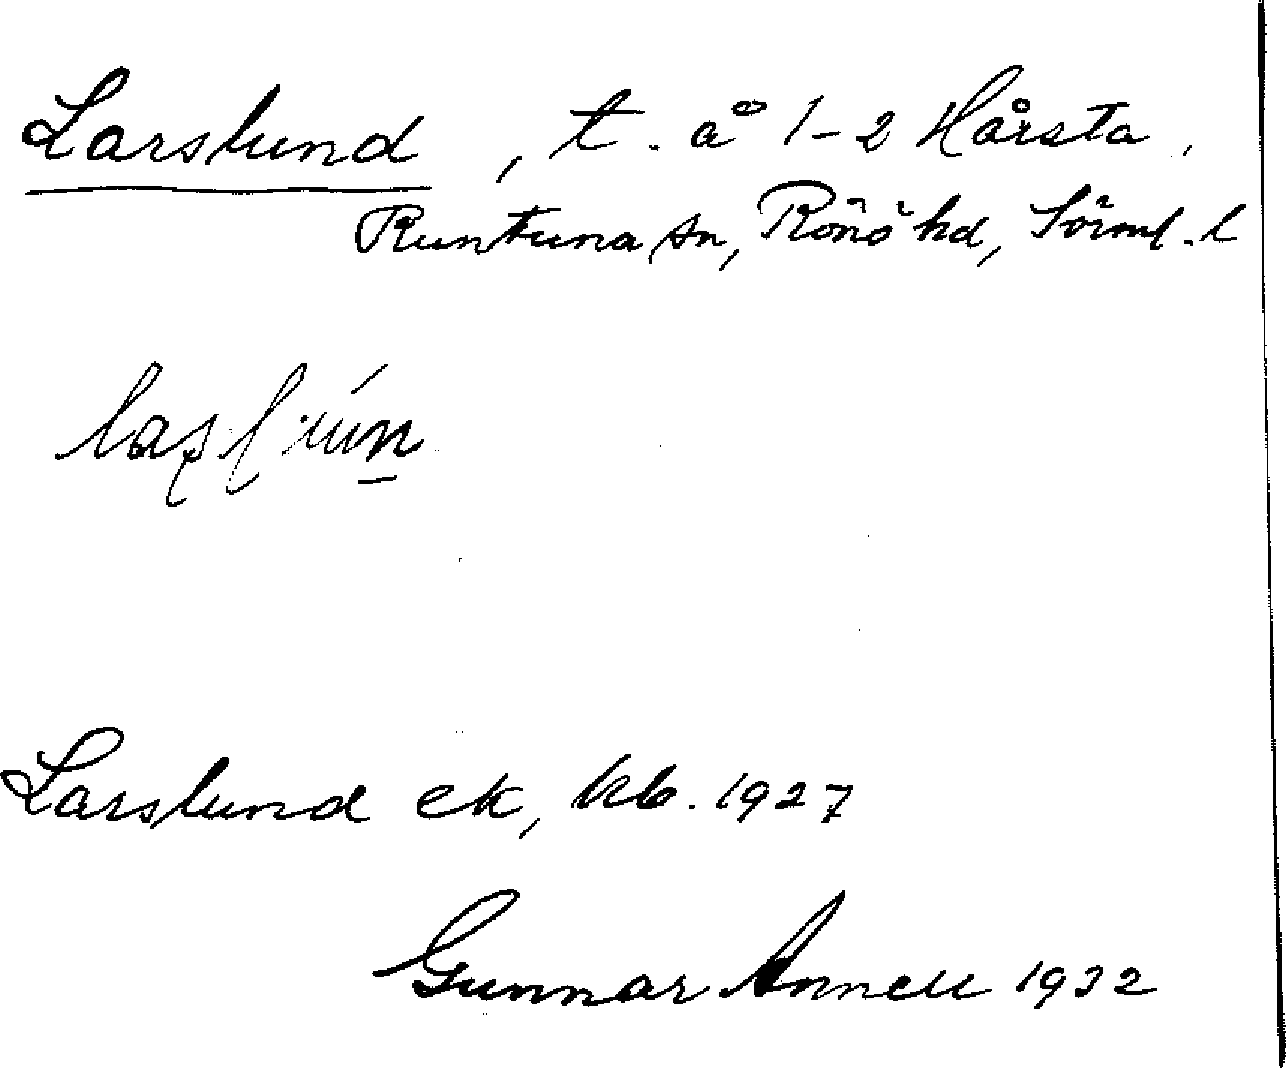 Larslund, t. å 1-2 Hårsta,
Runtuna sn, Rönö hd, Sörml. l
Larslund ek, kb. 1927
Gunnar Annell 1932